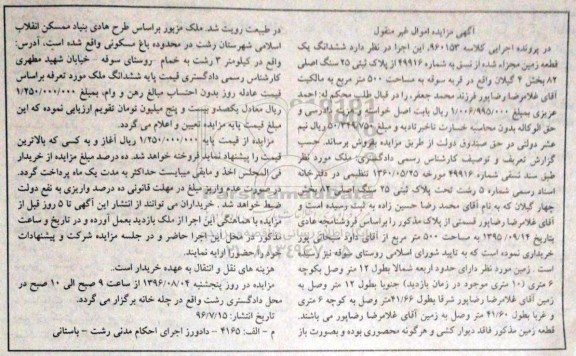 آگهی مزایده اموال غیر منقول
در پرونده اجرایی کلاسه ۹۶۰۱۵۳، این اجرا در نظر دارد ششدانگ یک
قطعه زمین مجزاء شده از نسق به شماره ۴۹۹۱۶ از پلاک ثبتی ۲۵ سنگ اصلی
۸۲ بخش ۴ گیلان واقع در قریه سوقه به مساحت ۵۰۰ متر مربع به مالکیت
آقای غلامرضا رضاپور فرزند محمد جعفر، را در قبال طلب محکوم له: احمد
عزیزی بمبلغ ۱/۰۰۶/۹۹۵/۰۰۰ ریال بابت اصل خواسته و هزینه دادرسی و
حق الوکاله بدون محاسبه خسارت تاخیر تادیه و مبلغ ۵۰/۳۴۹/۷۵۰ ریال نیم
عشر دولتی در حق صندوق دولت از طریق مزایده بفروش برساند. حسب
گزارش تعریف و توصیف کارشناس رسمی دادگستری: ملک مورد نظر
طبق سند نسقی شماره ۴۹۹۱۶ مورخه ۱۳۶۰/۰۵/۲۵ تنظیمی در دفترخانه
اسناد رسمی شماره ۵ رشت تحت پلاک ثبتی ۲۵ سنگ اصلی ۸۲ بخش
چهار گیلان که به نام آقای محمد رضا حسین زاده به ثبت رسیده است و
آقای غلامرضا رضاپور قسمتی از پلاک مذکور را براساس فروشنامه عادی
بتاریخ ۱۳۹۵/۰۹/۱۴ به مساحت ۵۰۰ متر مربع از آقای دارد سبحانی پور
خریداری نموده است که به تایید شورای اسلامی روستای سوقه نیز رسیده
است. زمین مورد نظر دارای حدود اربعه شمالا بطول ۱۲ متر وصل بکوچه
۶ متری (۱۰ متری موجود در زمان بازدید) جنوبا بطول ۱۲ متر وصل به
زمین آقای غلامرضا رضاپور شرقا بطول ۴۱/۶۶ متر وصل به کوچه ۶ متری
و غربا بطول ۴۱/۶۰ متر وصل به زمین آقای غلامرضا رضاپور می باشد.
قطعه زمین مذکور فاقد دیوار کشی و هرگونه محصوری بوده و بصورت باز
در طبیعت رویت شد. ملک مزبور براساس طرح هادی بنیاد مسکن انقلاب
اسلامی شهرستان رشت در محدوده باغ مسکونی واقع شده است. آدرس:
واقع در کیلومتر ۳ رشت به خمام - روستای سوقه - خیابان شهید مطهری
کارشناس رسمی دادگستری قیمت پایه ششدانگ ملک مورد تعرفه براساس
قیمت عادله روز بدون احتساب مبالغ رهن و وام، بمبلغ ۱/۲۵۰/۰۰۰/۰۰۰
ریال معادل یکصدو بیست و پنج میلیون تومان تقویم ارزیابی نموده که این
مبلغ قیمت پایه مزایده تعیین و اعلام می گردد.
مزایده از قیمت پایه ۱/۲۵۰/۰۰۰/۰۰۰ ریال آغاز و به کسی که بالاترین
قیمت را پیشنهاد نماید فروخته خواهد شد. ده درصد مبلغ مزایده از خریدار
فی المجلس اخذ و مابقی میبایست حداکثر به مدت یک ماه پرداخت گردد.
در صورت عدم واریز مبلغ در مهلت قانونی ده درصد واریزی به نفع دولت
ضبط خواهد شد. خریداران می توانند از انتشار این آگهی تا ۵ روز قبل از
مزایده با هماهنگی این اجرا از ملک بازدید بعمل آورده و در تاریخ و ساعت
مذکور در محل این اجرا حاضر و در جلسه مزایده شرکت و پیشنهادات
خود را حضورا ارایه نمایند.
هزینه های نقل و انتقال به عهده خریدار است.
مزایده در روز پنجشنبه ۱۳۹۶/۰۸/۰۴ از ساعت ۹ صبح الی ۱۰ صبح در
محل دادگستری رشت واقع در چله خانه برگزار می گردد.
تاریخ انتشار: ۹۶/۷/۱۵
م - الف: ۴۱۶۵ - دادورز اجرای احکام مدنی رشت - باستانی